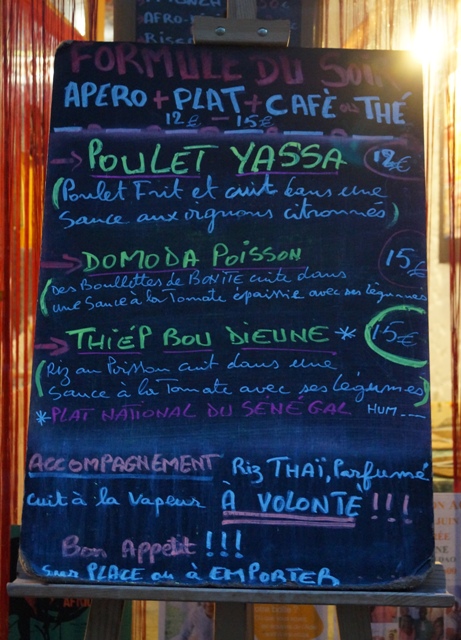 AFRO-
FORMULE DU SOIR
APERO + PLAT + CAFÈ ou THÉ
12€ - 15€
→ POULET YASSA 12€
(Poulet Frit et cuit dans une
Sauce aux oignons citronnés)
→ DOMODA POISSON 15€
(des Boullettes de BONITE cuite dans
une Sauce à la Tomate épaissie avec ses légumes
→ THIÉP BOU DIEUNE * 15€
(Riz au Poisson cuit dans une
Sauce à la Tomate avec ses légumes)
*PLAT NATIONAL DU SÉNÉGAL HUM---
ACCOMPAGNEMENT Riz THAÏ, Parfumé
cuit à la Vapeur À VOLONTÉ !!!
Bon Appetit !!!
Sur PLACE ou à EMPORTER